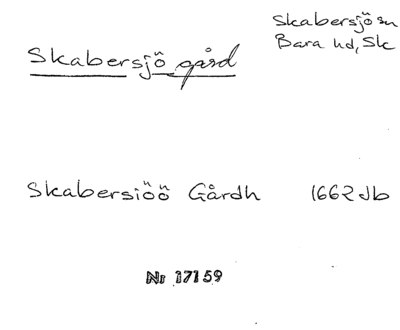 Skabersjö sn
Bara hd, Sk
Skabersjö gård
Skabersiöö Gårdh 1662 Jb
Nr 17159